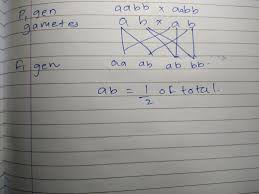 P, gen aabb × aabb
gametes a b × a b
F, gen aa ab ab bb
ab = 1/2 of total.